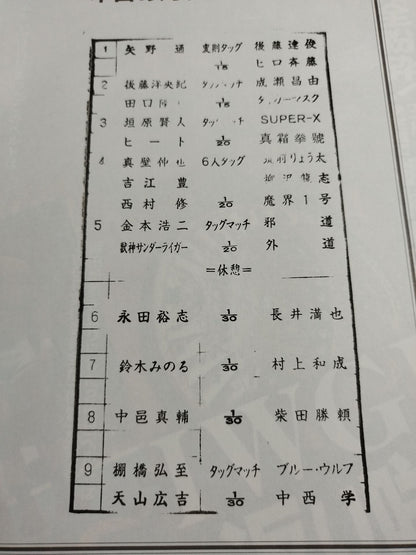 1 矢野 通 変則タッグ 後藤達俊
1/15 ヒロ斉藤
2 後藤洋央紀 タッグマッチ 成瀬昌由
田口隆 1/15 タイガーマスク
3 垣原賢人 タッグマッチ SUPER-X
ヒート 1/20 真霜拳號
4 真壁伸也 6人タッグ りょう太
吉江 豊 志
西村 修 1/20 魔界1号
5 金本浩二 タッグマッチ 邪道
獣神サンダーライガー 1/20 外道
=休憩=
6 永田裕志 1/30 長井満也
7 鈴木みのる 1/30 村上和成
8 中邑真輔 1/30 柴田勝頼
9 棚橋弘至 タッグマッチ ブルー・ウルフ
天山広吉 1/30 中西 学